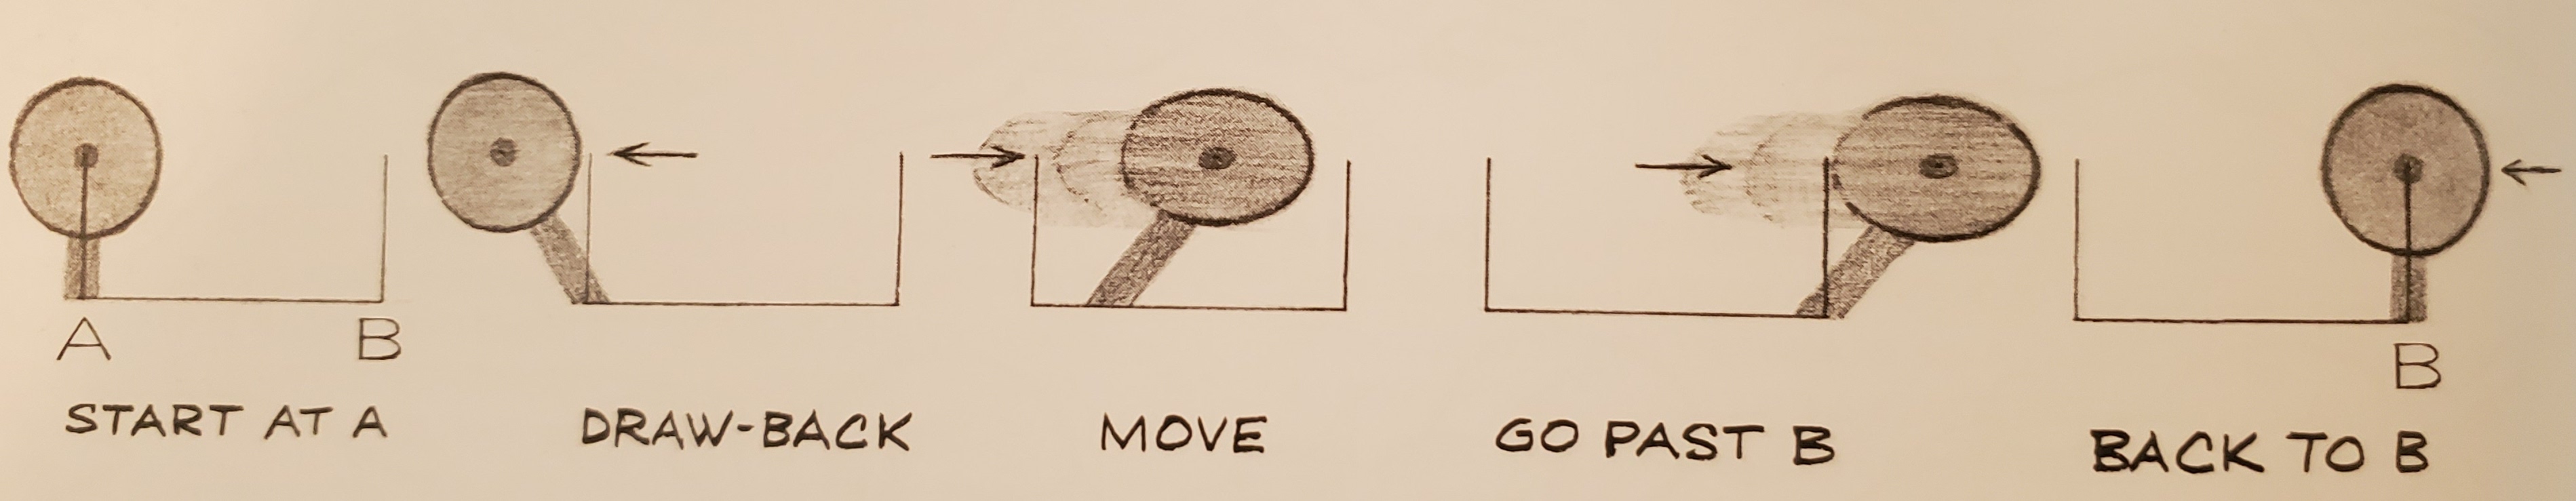 A B
B
START AT A
DRAW-BACK
MOVE
GO PAST B
BACK TO B